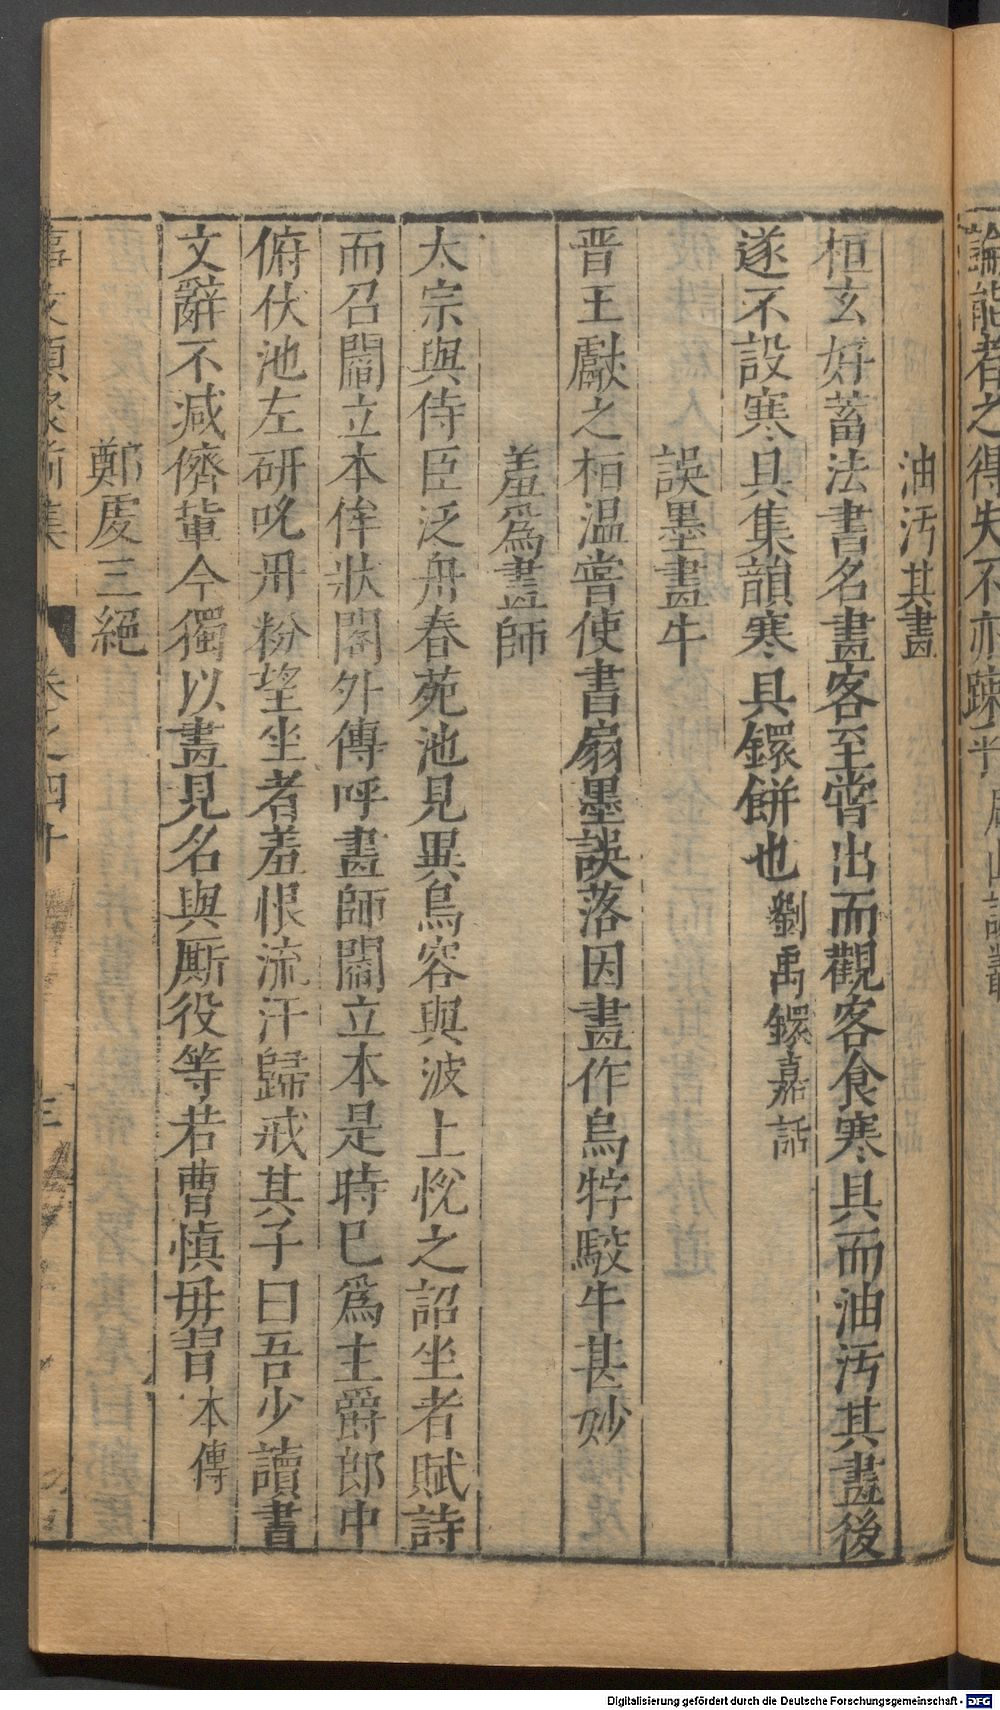 論能者之得失不亦踈
油汚其畫
桓玄好蓄法書名畫客至甞出而觀客食寒具而油汚其畫後
遂不設寒具集韻寒具鐶餅也劉禹錫嘉話
誤墨畫牛
晋王獻之桓温嘗使書扇墨誤落因畫作烏牸駮牛甚妙
羞爲畫師
太宗與侍臣泛舟春苑池見異鳥容與波上恱之詔坐者賦詩
而召閻立本侔狀閣外傳呼畫師閻立本是時巳爲主爵郎中
俯伏池左研吮丹粉望坐者羞恨流汗歸戒其子曰吾少讀書
文辭不减儕軰今獨以畫見名與厮役等若曹慎毋習本傳
鄭虔三絕
事文類聚前集 卷之四十 三
Digitalisierung gefördert durch die Deutsche Forschungsgemeinschaft - DFG